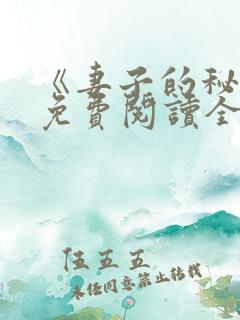 《妻子的秘
免費閱讀全
任五五
未经同意禁止转载